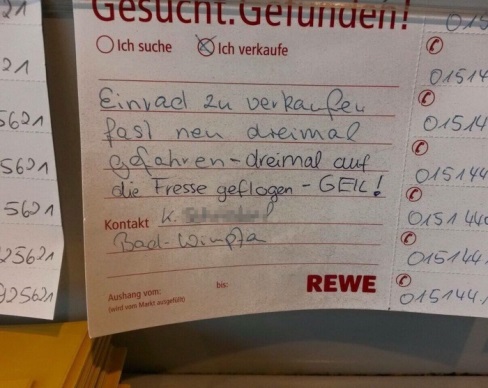 Gesucht.Gefunden!
Ich suche Ich verkaufe
Einrad zu verkaufen
fast neu dreimal
gefahren-dreimal auf
die Fresse geflogen - GEIL!
Kontakt K.
Bad-Wimpfen
Aushang vom: bis:
(wird vom Markt ausgefüllt)
REWE
21
21
5621
5621
5621
25621
925621
015
01514
01514
015144
0151 440
015144
015144